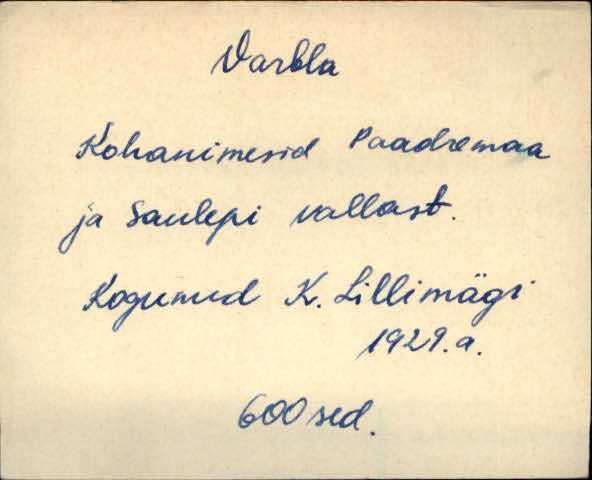 Varbla
Kohanimesid Paadremaa
ja Saulepi vallast.
Kogunud K. Lillimägi
1929.a.
600 sed.